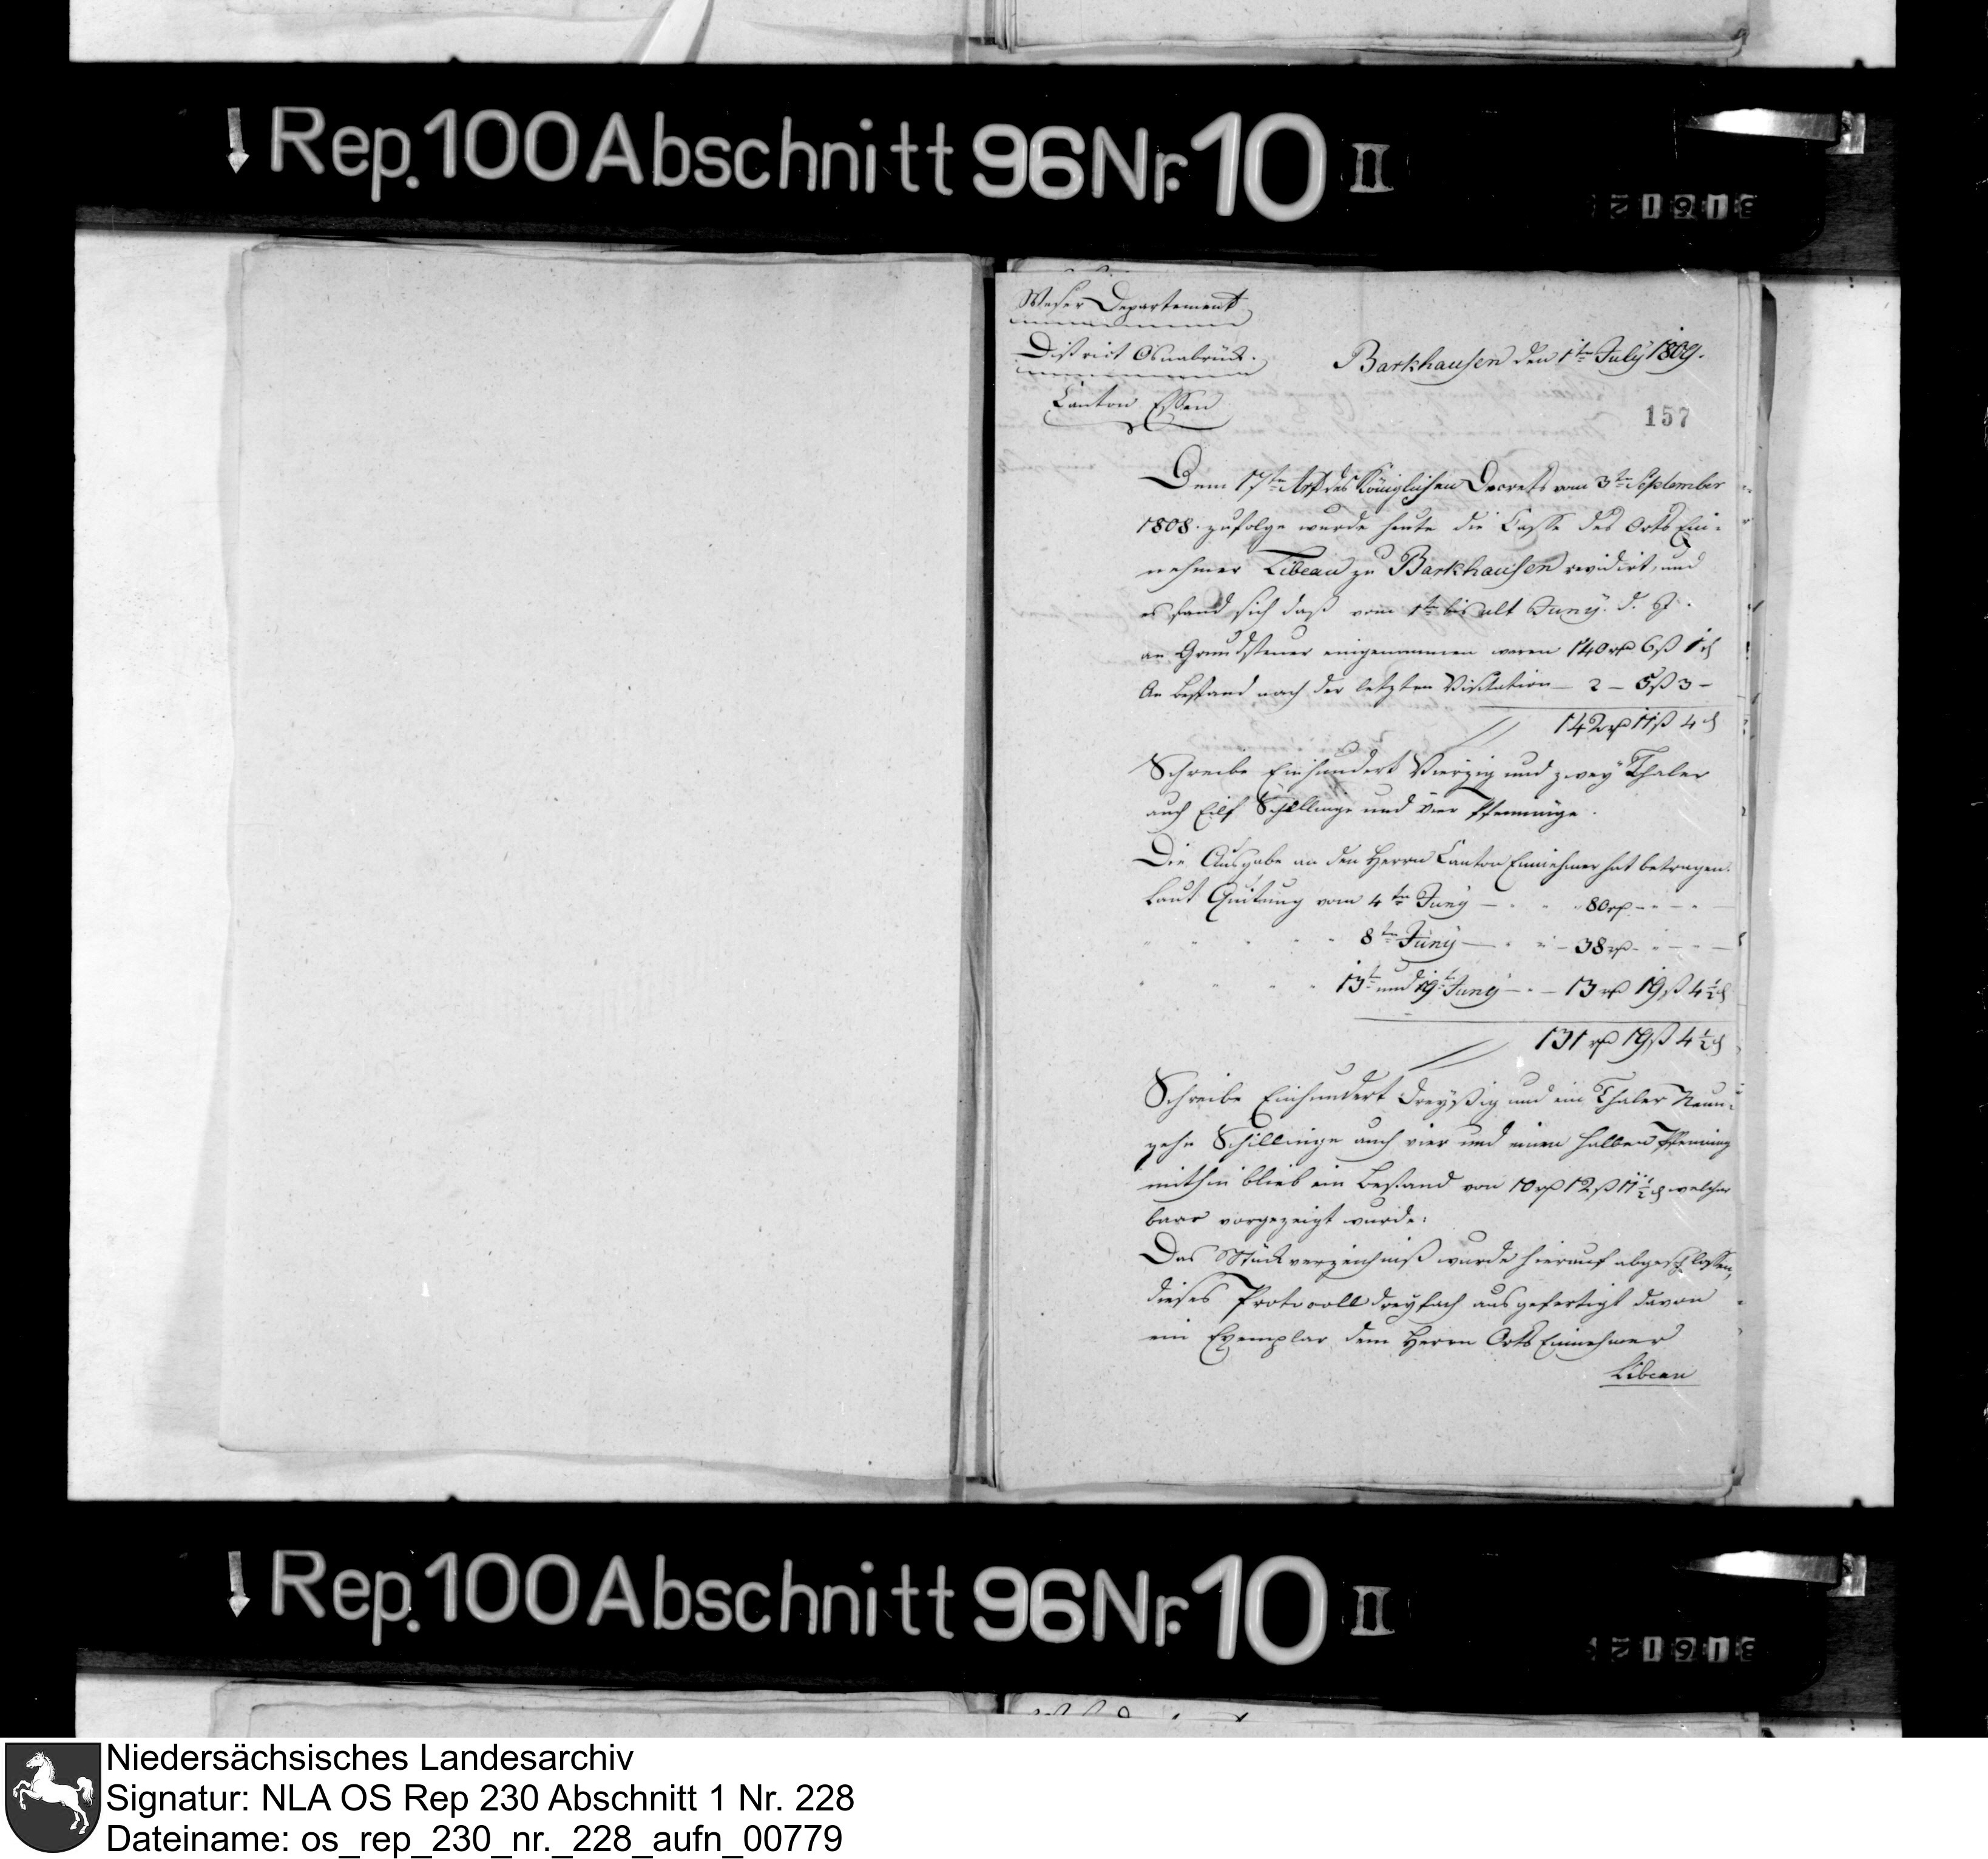 Rep. 100 Abschnitt 96 Nr. 10 II
Weser Departement
District Osnabrück.
Canton Essen
Barkhausen den 1ten July 1809.
157
Dem 17ten Art des Königlichen Decrets vom 3ten September
1808. zufolge wurde heute die Casse des Orts Ein-
nehmer Libeau zu Barkhausen revidirt, und
es fand sich daß vom 1ten bis ult Juny. d. J.
an Grundsteuer eingenommen waren 140 rthl 6 ß 1 d
An Bestand nach der letzten Visitation — 2 — 5 ß 3 —
142 rthl 11 ß 4 d
Schreibe Einhundert Vierzig und zwey Thaler
auch Eilf Schillinge und vier Pfenninge.
Die Ausgabe an den Herrn Canton Einnehmer hat betragen.
Laut Quitung vom 4ten Juny — " " 80 rthl - " - "
" " " " " 8ten Juny — " " - 38 rthl - " - " -
" " " " 13t und 19t Juny - " - 13 rthl 19 ß 4 1/2 d
131 rthl 19 ß 4 1/2 d
Schreibe Einhundert dreyßig und ein Thaler Neun-
zehn Schillinge auch vier und einen halben Pfenning
mithin blieb ein Bestand von 10 rthl 12 ß 11 1/2 d welcher
baar vorgezeigt wurde:
Das Stückverzeichniß wurde hierauf abgeschlossen,
dieses Protocoll dreyfach ausgefertigt davon
ein Exemplar dem Herrn Orts Einnehmer
Libeau
Rep. 100 Abschnitt 96 Nr. 10 II
Niedersächsisches Landesarchiv
Signatur: NLA OS Rep 230 Abschnitt 1 Nr. 228
Dateiname: os_rep_230_nr._228_aufn_00779